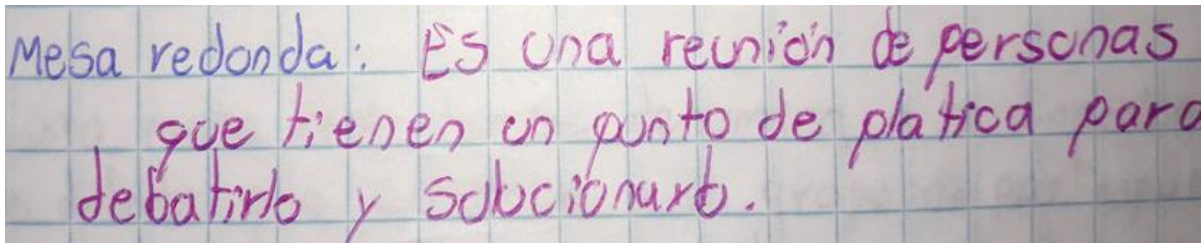 Mesa redonda: Es una reunión de personas
que tienen un punto de platica para
debatirlo y solucionarlo.